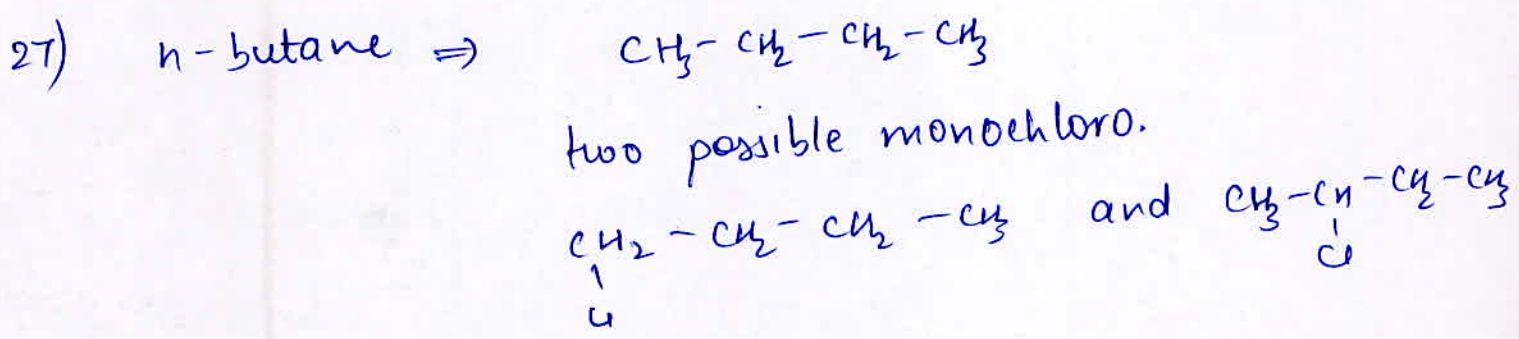 27) n-butane ⇒ CH3 - CH2 - CH2 - CH3
two possible monochloro.
CH2 - CH2 - CH2 - CH3 and CH3 - CH - CH2 - CH3
Cl Cl